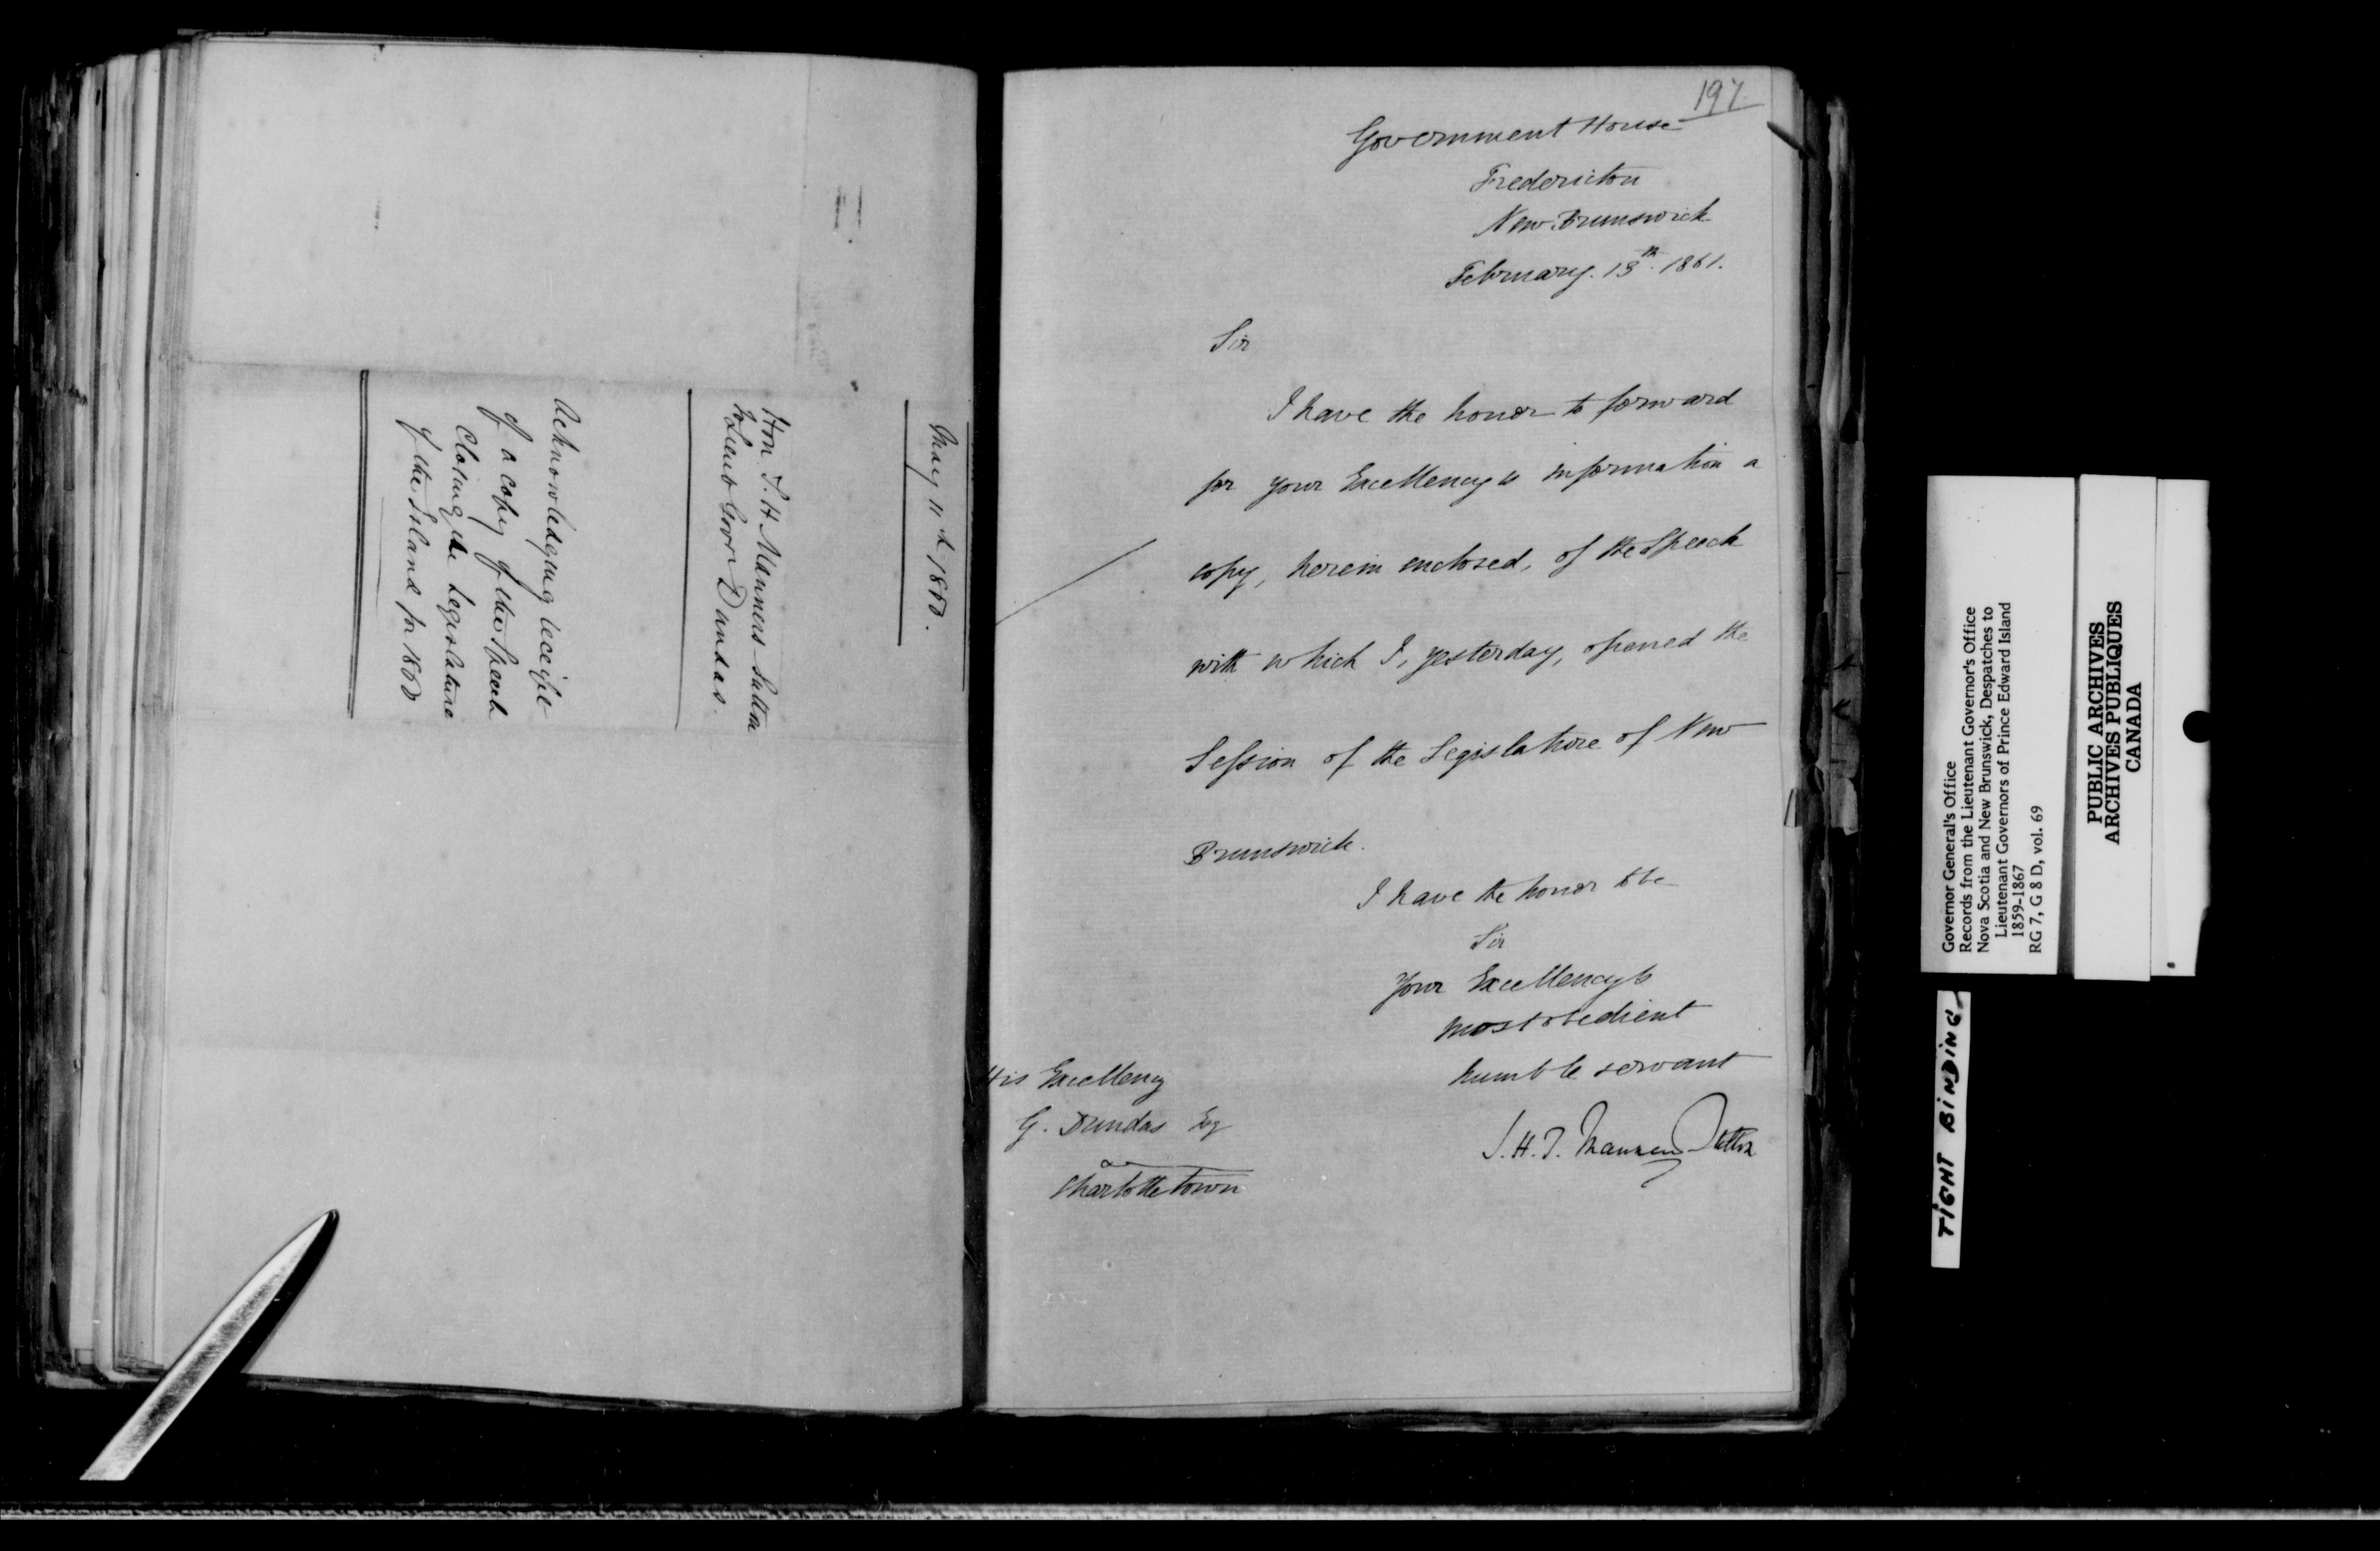 May 11th 1860.
Hon J. H. Manners-Sutton
to Lieut Govr Dundas.
Acknowledging receipt
of a copy of the Speech
closing the Legislature
of the Island for 1860
197
Government House
Fredericton
New Brunswick
February. 13th. 1861.
Sir
I have the honor to forward
for your Excellency's information a
copy, herein enclosed, of the Speech
with which I, yesterday, opened the
Session of the Legislature of New
Brunswick.
I have the honor to be
Sir
Your Excellency's
most obedient
humble servant
J. H. T. Manners Sutton
His Excellency
G. Dundas Esq
Charlottetown
Governor General's Office
Records from the Lieutenant Governor's Office
Nova Scotia and New Brunswick, Despatches to
Lieutenant Governors of Prince Edward Island
1859-1867
RG 7, G 8 D, vol. 69
PUBLIC ARCHIVES
ARCHIVES PUBLIQUES
CANADA
TIGHT BINDING